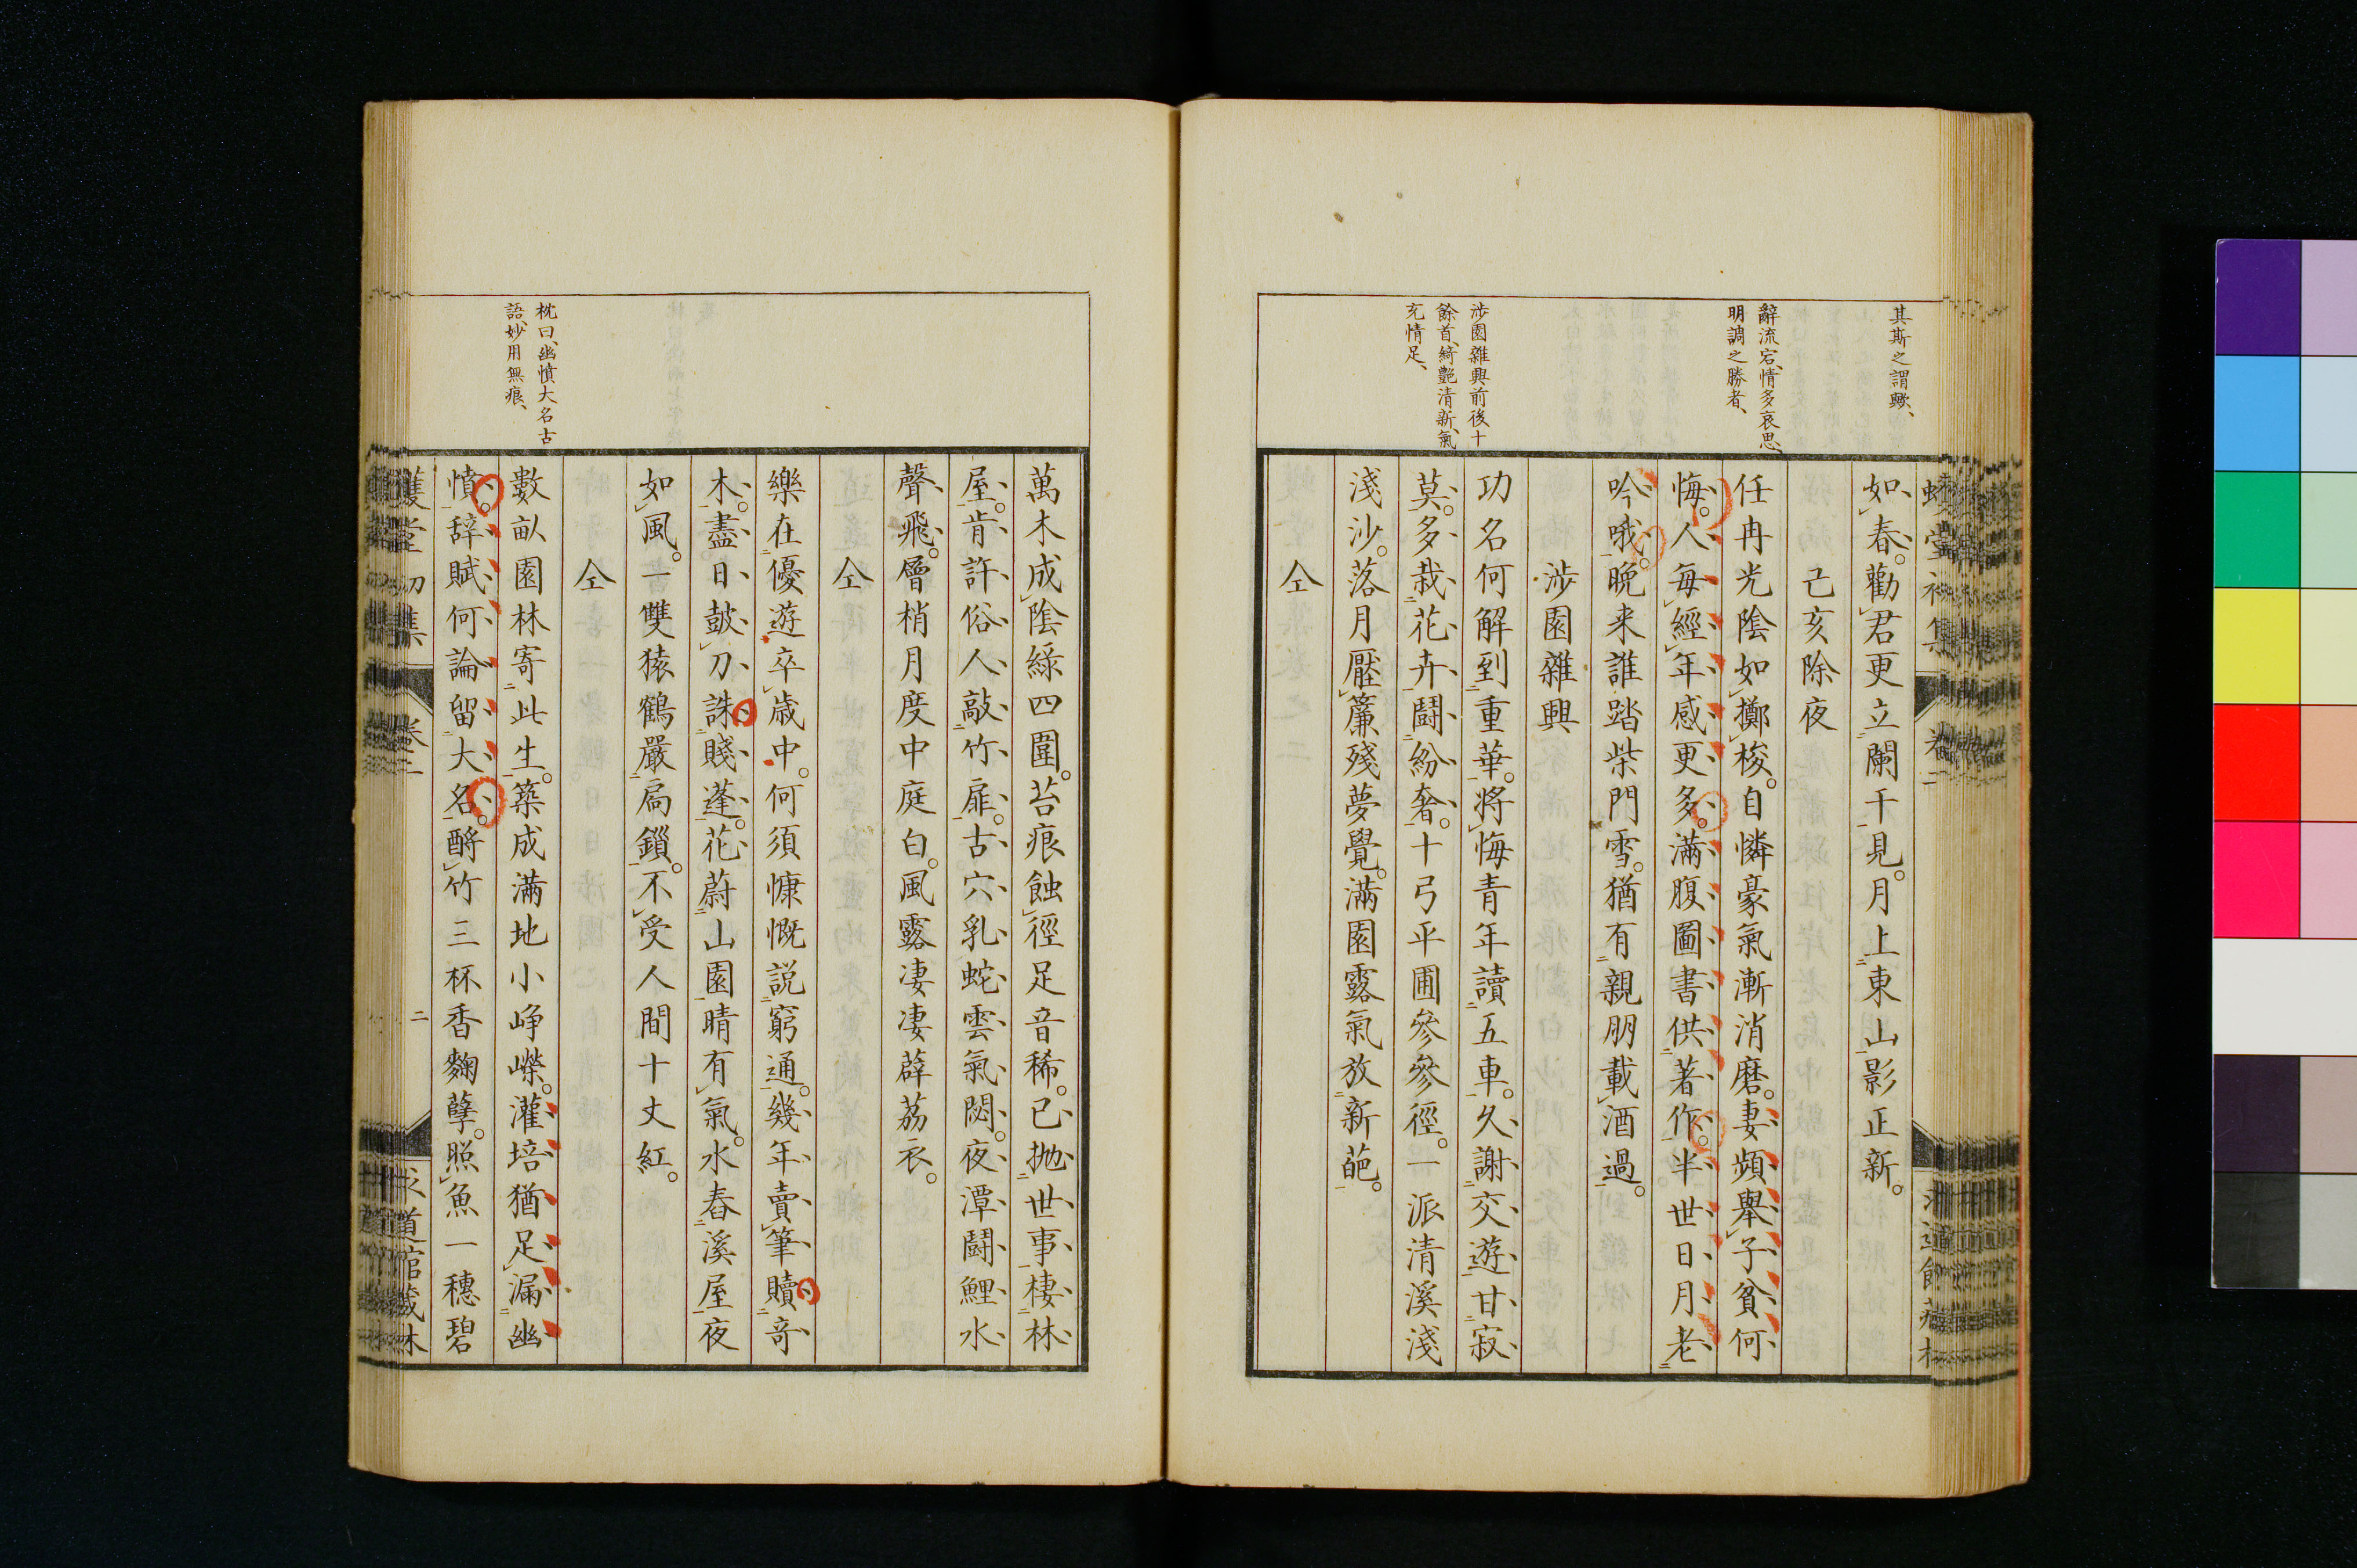 其斯之謂歟、
辭流宕、情多哀思、
明調之勝者、
涉園雜興前後十
餘首、綺艷清新、氣
充情足、
如春。勸君更立闌干見。月上東山影正新。
己亥除夜
任冉光陰如擲梭。自憐豪氣漸消磨。妻頻舉子貧何
悔。人每經年感更多。滿腹圖書供著作。半世日月老
吟哦。晩来誰踏柴門雪。猶有親朋載酒過。
涉園雜興
功名何解到重華。將悔青年讀五車。久謝交遊甘寂
莫。多栽花卉鬪紛奢。十弓平圃參參徑。一派清溪淺
淺沙。落月壓簾殘夢覺。滿園露氣放新葩。
仝
萬木成陰綠四圍。苔痕蝕徑足音稀。已抛世事棲林
屋。肯許俗人敲竹扉。古穴乳蛇雲氣閟。夜潭鬪鯉水
聲飛。層梢月度中庭白。風露凄凄薜荔衣。
仝
樂在優遊卒歳中。何須慷慨説窮通。幾年賣筆贖奇
木。盡日鼓刀誅賤蓬。花蔚山園晴有氣。水舂溪屋夜
如風。一雙猿鶴嚴扃鎖。不受人間十丈紅。
仝
枕曰、幽憤大名古
語、妙用無痕、
數畝園林寄此生。築成滿地小峥嶸。灌培猶足漏幽
憤。辞賦何論留大名。酹竹三杯香麴孽。照魚一穗碧
卷二
二